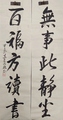 無事此靜坐
百福方讀書